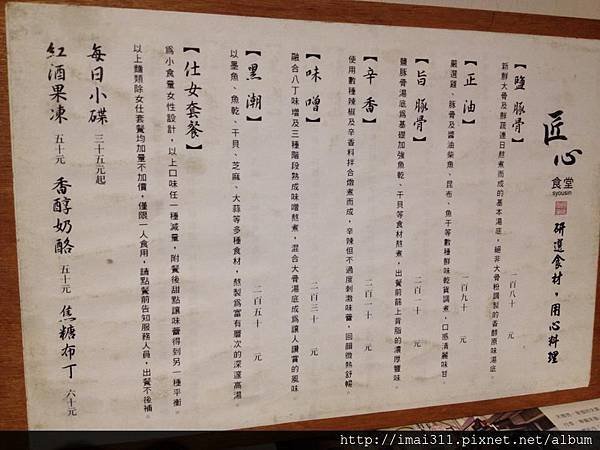 匠心
食堂
syousin
研選食材，用心料理
【鹽豚骨】
新鮮大骨及鮮蔬連日熬煮而成的基本湯底，絕非大骨粉調製的香醇原味湯底。
一百八十 元
【正油】
嚴選雞、豚骨及醬油柴魚、昆布、魚干等數種鮮味乾貨調煮，口感清麗味甘
一百九十 元
【旨豚骨】
鹽豚骨湯底為基礎加強魚乾、干貝等食材熬煮，出餐前篩上背脂的濃厚鹽味。
二百一十 元
【辛香】
使用數種辣椒及辛香料拌合燉煮而成，辛辣但不過度刺激味蕾，回韻微熱舒暢。
二百一十 元
【味噌】
融合八丁味噌及三種階段熟成味噌熬煮，混合大骨湯底成為讓人讚賞的風味
二百三十 元
【黑潮】
以墨魚、魚乾、干貝、芝麻、大蒜等多種食材，熬製為富有層次的深邃高湯。
二百五十 元
【仕女套餐】
為小食量女性設計，以上口味任一種減量，附餐後甜點讓味蕾得到另一種平衡。
以上麵類除女仕套餐均加量不加價，僅限一人食用，請點餐前告知服務人員，出餐不後補。
每日小碟 三十五元起
紅酒果凍 五十元 香醇奶酪 五十元 焦糖布丁 六十元
http://imai311.pixnet.net/album